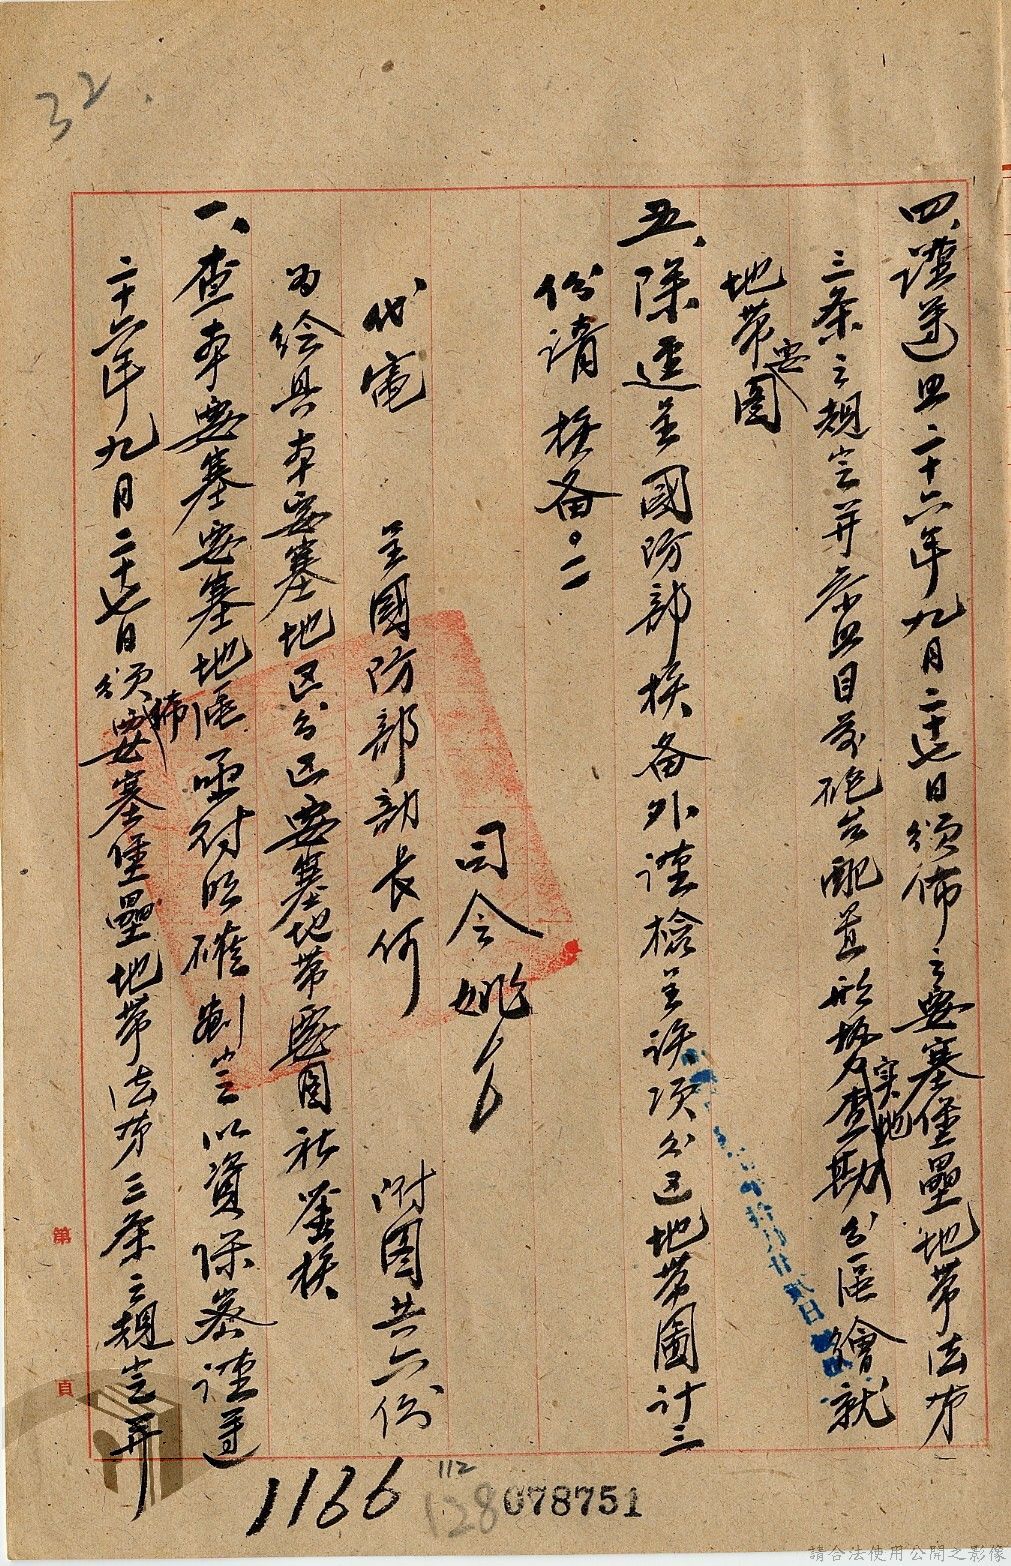 32.
四、謹遵照二十六年九月二十七日頒佈之要塞堡壘地帶法第
三条之規定并参照目前砲台配置形勢實地查勘分區繪就
地帶要圖
五、除逕呈國防部核备外謹檢呈該項分区地帶圖計三
份請核备。二
司令姚
代電 呈國防部部長何 附图共六份
为绘具本要塞地区分区要塞地帶要图祈鉴核
一、查本要塞要塞地區亟待明確劃定以資保密謹遵
二十六年九月二十七日頒佈要塞堡壘地帶法第三条之規定并
第
頁
1166
112
128
078751
請合法使用公開之影像